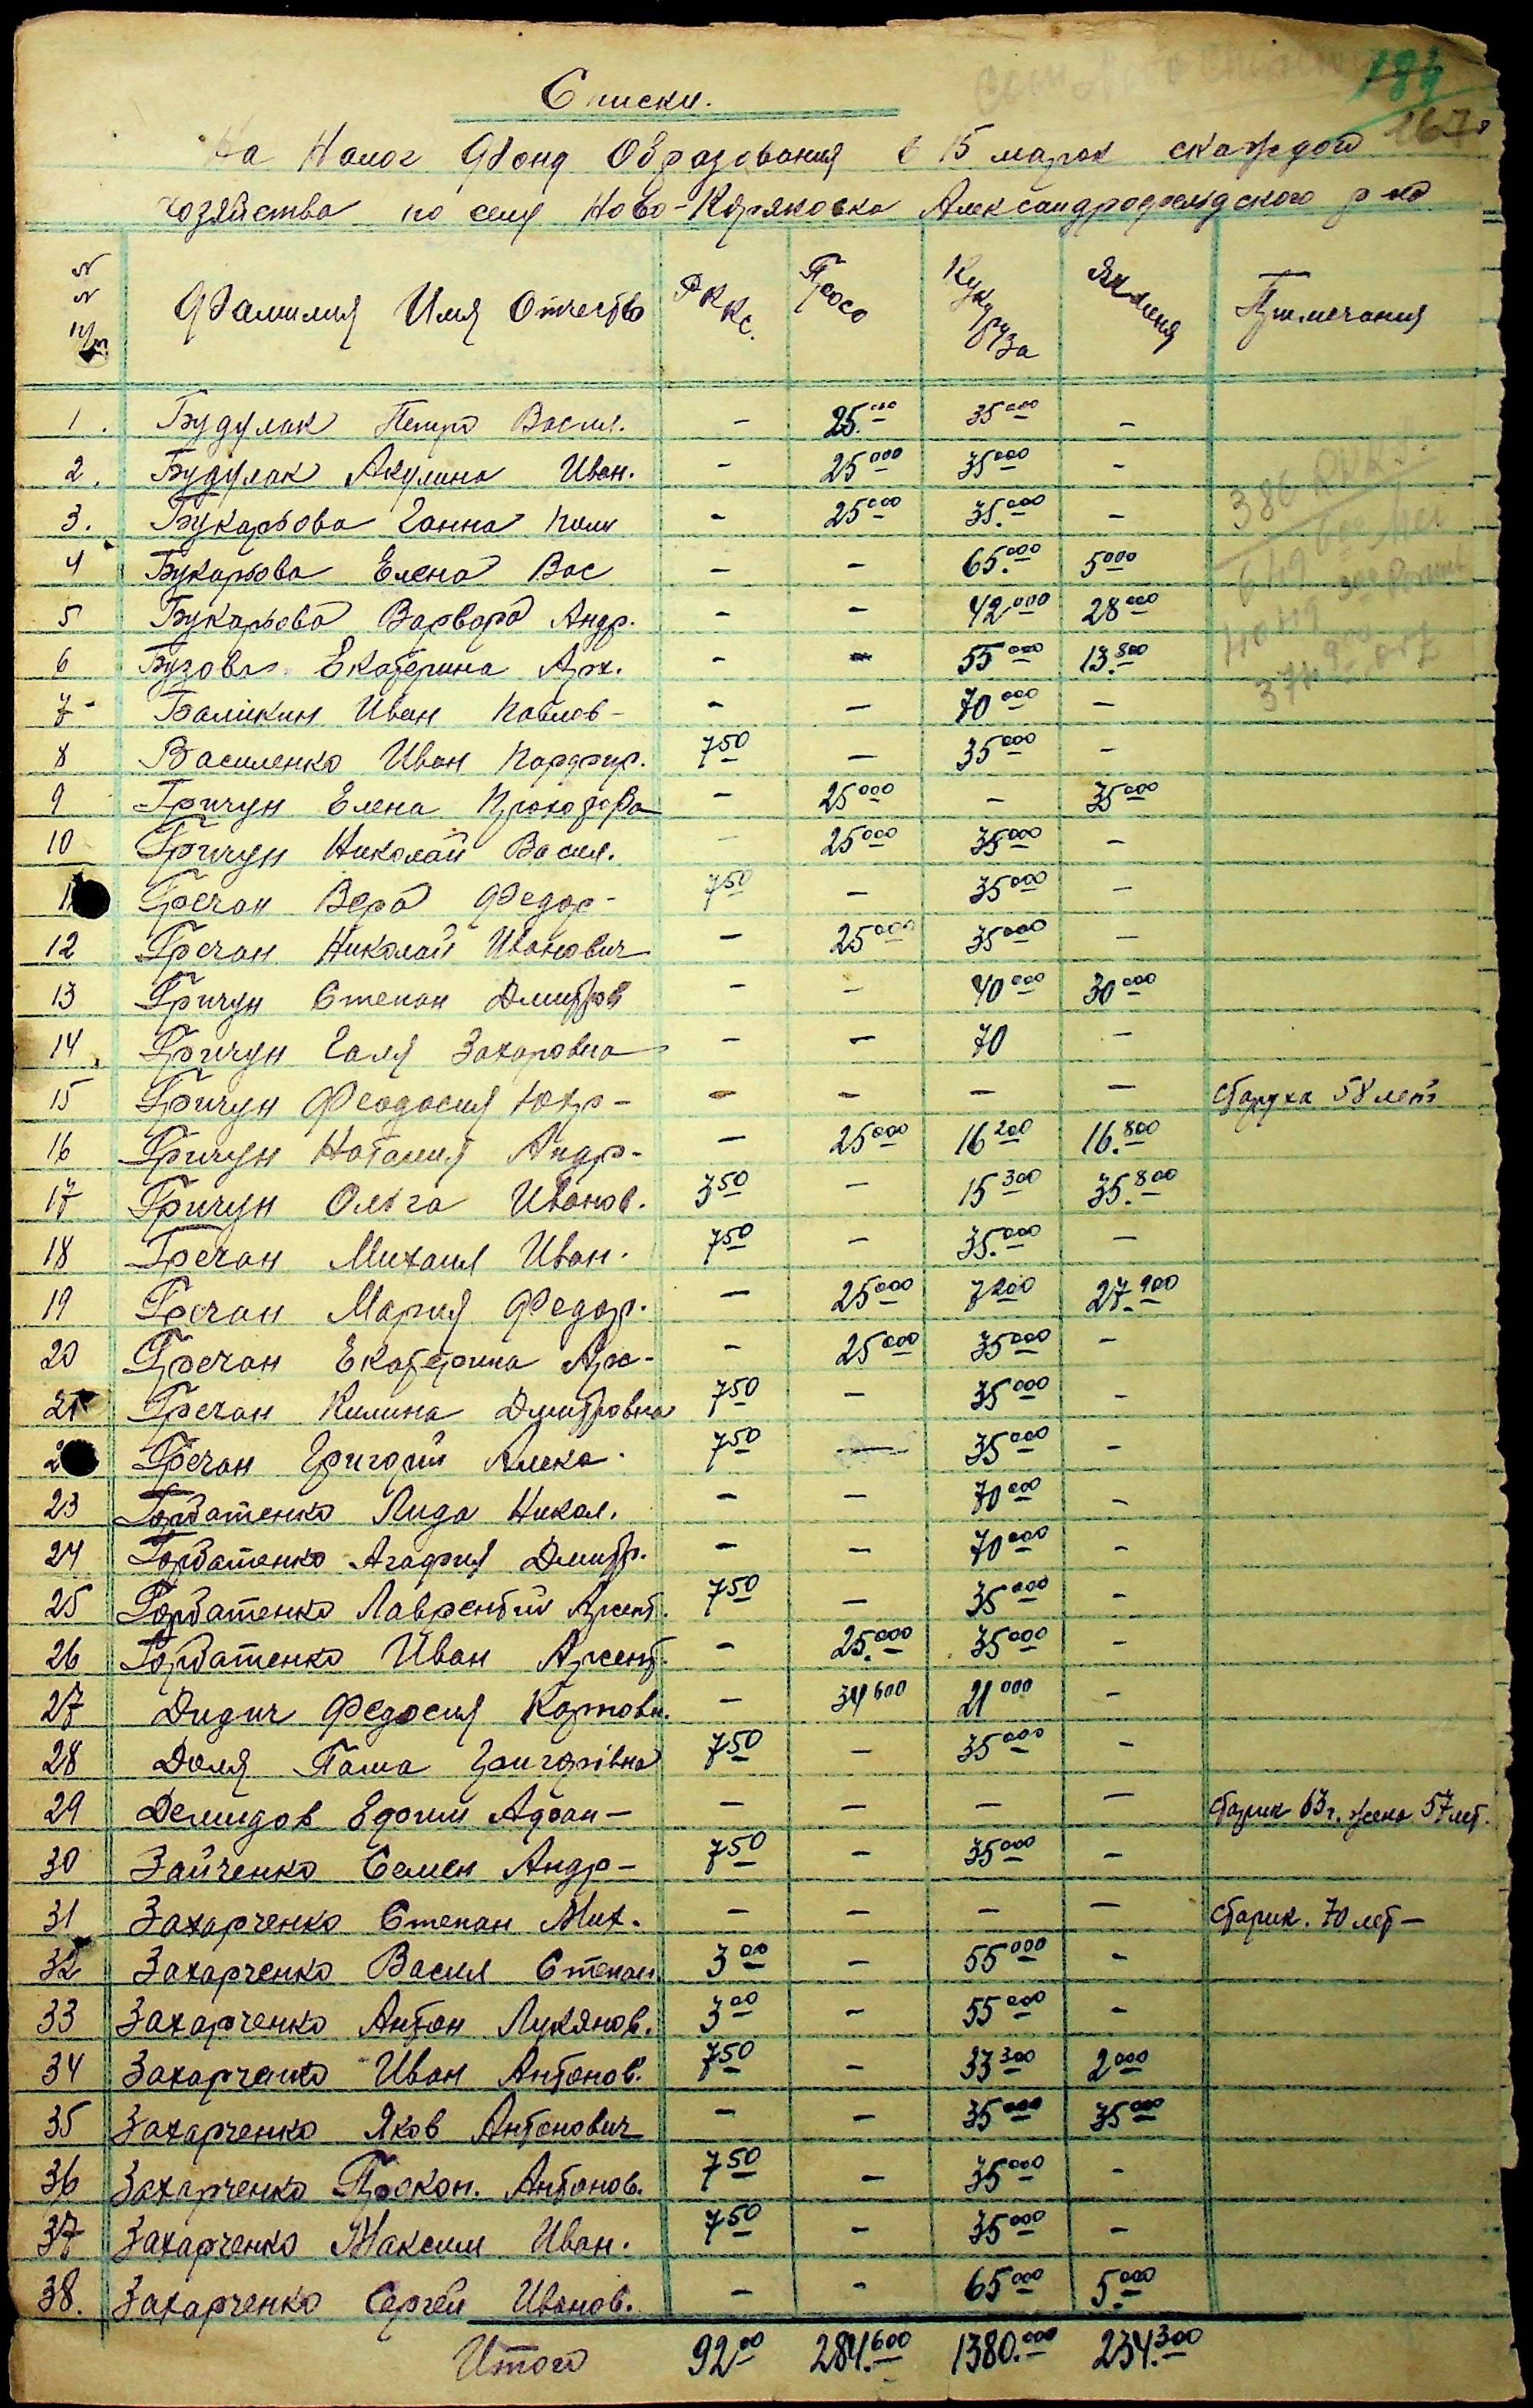 184
167
Списки.
На Налог Фонд Образования в 15 марок с каждой
хозяйства по селу Ново-Кряковка Александрофельдского р-на
N N п/п Фамилия Имя Отчество РККС. Просо Кукуруза Ячменя Примечания
1. Будулак Петро Васил. - 25.000 35000 -
2. Будулак Акулина Иван. - 25000 35000 -
3. Букарьова Ганна Поли - 25000 35.000 -
4 Букарьова Елена Вас - - 65.000 5000
5 Букарьова Варвара Андр. - - 42.000 28000
6 Бузова Екатерина Арх. - - 55000 13.800
7 Балыкин Иван Павлов- - - 70000 -
8 Василенко Иван Порфир. 750 - 35000 -
9 Гричун Елена Прохорова - 25000 - 35000
10 Гричун Николай Васил. - 25000 35000 -
11 Гречан Вера Федор- 750 - 35000 -
12 Гречан Николай Иванович - 25000 35000 -
13 Гричун Степан Дмитров - - 40000 30000
14 Гричун Галя Захаровна - - 70 -
15 Гричун Феодосия - - - - старуха 58 лет
16 Гричун Наталия Андр- - 25000 16200 16.800
17 Гричун Ольга Иванов. 350 - 15300 35.800
18 Гречан Михаил Иван. 750 - 35.000 -
19 Гречан Мария Федор. - 25000 7200 27.900
20 Гречан Екатерина Арх- - 25000 35000 -
21 Гречан Килина Дмитровна 750 - 35000 -
2 Гречан Григорий Алекс. 750 - 35000 -
23 Горбатенко Лида Никол. - - 70000 -
24 Горбатенко Агафия Дмитр. - - 70000 -
25 Горбатенко Лаврентий Арсент. 750 - 35000 -
26 Горбатенко Иван Арсент. - 25.000 35000 -
27 Дидич Федосия Карповн. - 34600 21000 -
28 Доля Паша Григорівна 750 - 35000 -
29 Демидов Ефим - - - - старик 63 г. жена 57 лет.
30 Зайченко Семен Андр- 750 - 35000 -
31 Захарченко Степан Мих. - - - - старик. 70 лет-
32 Захарченко Васил Степан. 300 - 55000 -
33 Захарченко Антон Лукянов. 300 - 55000 -
34 Захарченко Иван Антонов. 750 - 33300 2000
35 Захарченко Яков Антонович - - 35000 35000
36 Захарченко Прокоп. Антонов. 750 - 35000 -
37 Захарченко Максим Иван. 750 - 35000 -
38. Захарченко Сергей Иванов. - - 65000 5.000
Итого 9200 284.600 1380.000 234.300